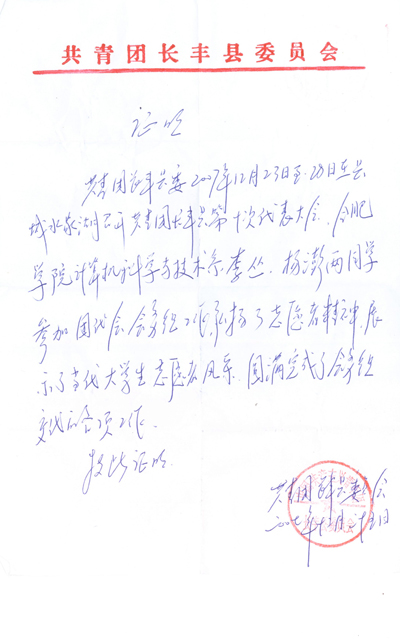 共青团长丰县委员会
证明
共青团长丰县委2007年12月23日至25日在县
城水家湖召开共青团长丰县第十次代表大会，合肥
学院计算机科学与技术系李丛、杨澎两同学
参加团代会会务组工作，弘扬了志愿者精神，展
示了当代大学生志愿者风采，圆满完成了会务组
交代的各项工作。
特此证明。
共青团长丰县委员会
二00七年十二月二十五日